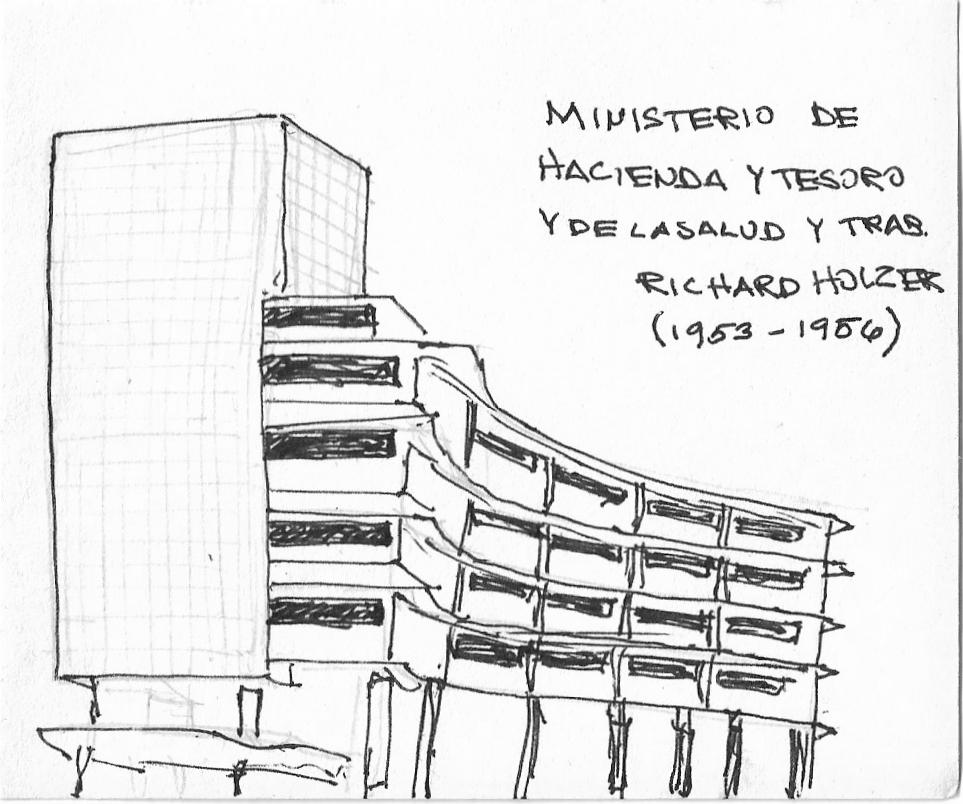 MINISTERIO DE
HACIENDA Y TESORO
Y DE LA SALUD Y TRAB.
RICHARD HOLZER
(1953-1956)